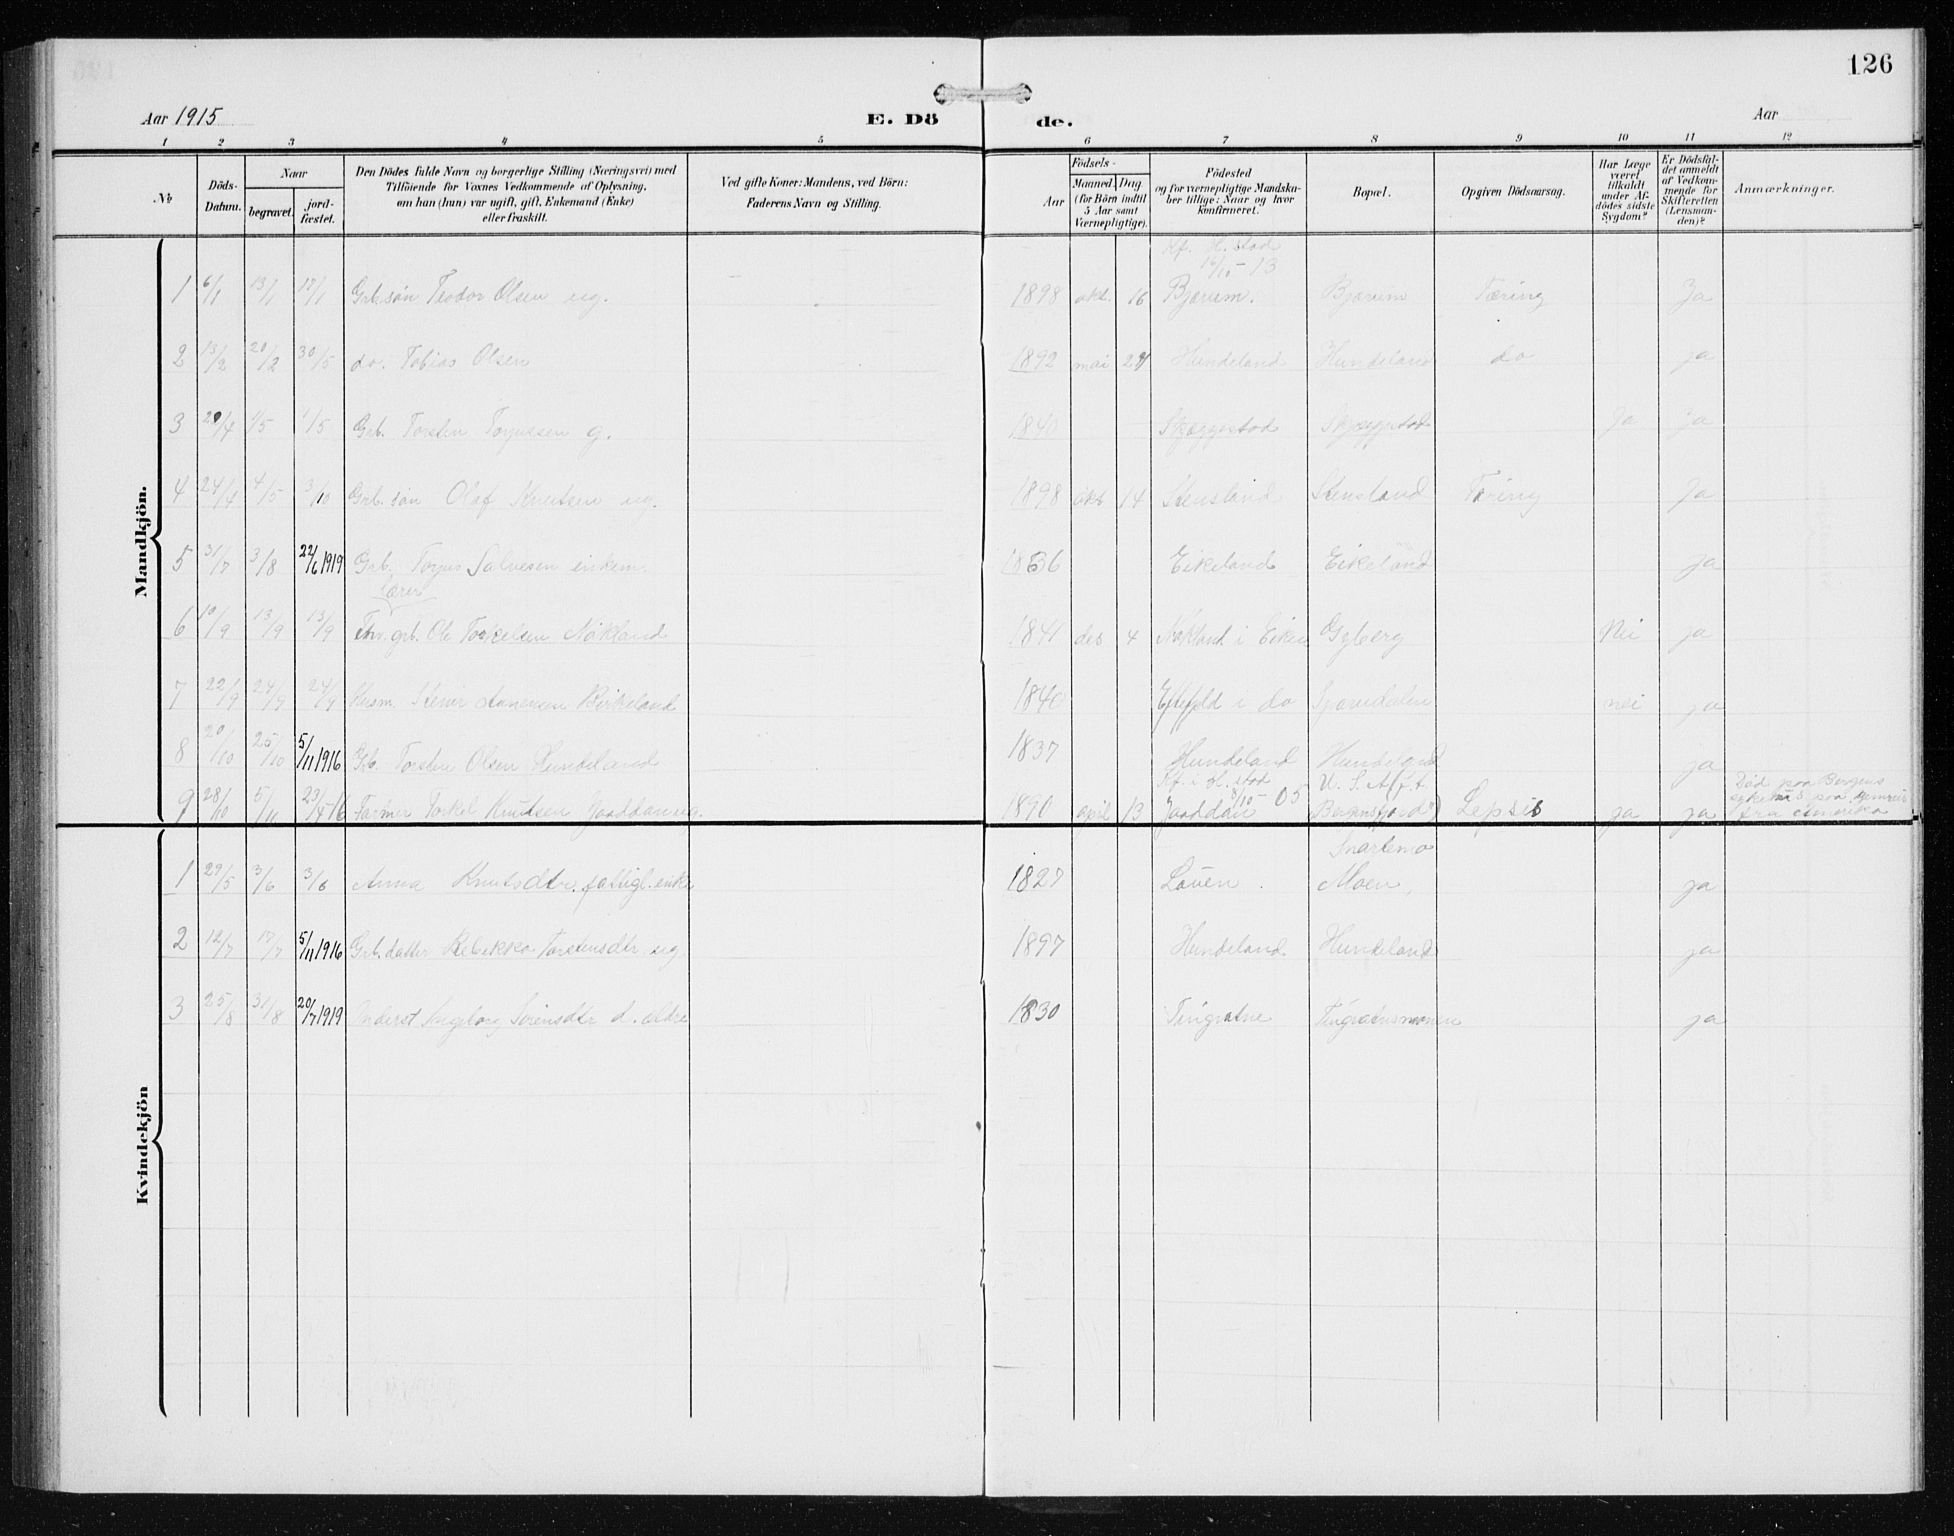 126
Aar 1915
E. Dö de.
Aar
1 2 3 4 5 6 7 8 9 10 11 12
No
Döds-Datum.
Naar
begravet.
jord-fæstet.
Den Dödes fulde Navn og borgerlige Stilling (Næringsvei) med
Tilföiende for Voxnes Vedkommende af Oplysning,
om han (hun) var ugift, gift, Enkemand (Enke)
eller fraskilt.
Ved gifte Koner: Mandens, ved Börn:
Faderens Navn og Stilling.
Födsels-
Aar
Maaned. Dag.
(for Börn indtil
5 Aar samt
Værnepligtige).
Födested
og for værnepligtige Mandska-
ber tillige: Naar og hvor
konfirmeret.
Bopæl.
Opgiven Dödsaarsag.
Har Læge
været
tilkaldt
under Af-
dödes sidste
Sygdom?
Er Dödsfal-
det anmeldt
af Vedkom-
mende for
Skifteretten
(Lensman-
den)?
Anmærkninger.
Mandkjön.
Kf. H.stad
16/10 - 13
1 6/1 13/1 17/1 Grb.søn Teodor Olsen ug. 1898 okt. 16 Bjærum. Bjærum Tæring Ja
2 13/2 20/2 30/5 do. Tobias Olsen 1892 mai 24 Hundeland Hundeland do ja
3 20/4 1/5 1/5 Grb. Torsten Torjussen g. 1840 Skjeggestad Skjeggestad Ja Ja
4 24/4 4/5 3/10 Grb. søn Olaf Knutsen ug. 1898 okt 14 Stensland Stensland Tæring Ja
5 31/7 3/8 22/6 1919 Grb. Torjus Salvesen enkem. 1836 Eikeland Eikeland ja
Lærer
6 10/9 13/9 13/9 Fhv. grb. Ole Torkelsen Nøkland 1841 des 4 Nøkland i Eiken Gyberg Nei ja
7 22/9 24/9 24/9 Husm. Aanensen Birkeland 1840 i do nei ja
8 20/10 25/10 5/11 1916 Grb. Torsten Olsen Hundeland 1837 Hundeland Hundeland ja
Kf. i H.stad 8/10 - 05
9 28/10 5/11 23/4-16 Farmer Torkel Knutsen Jaaddan ug. 1890 april 13 Jaaddan U. S. A. (f.t. Bergensfjord") Lepsis ja ja Død paa Bergens sykehus paa hjemreis fra Amerika
Kvindekjön
1 29/5 3/6 3/6 Anna Knutsdtr. fattigl. enke 1827 Lauen. Snartemo Moen, ja
2 12/7 17/7 5/11 1916 Grb. datter Rebekka Torstensdtr. ug. 1897 Hundeland Hundeland ja
3 25/8 31/8 20/7 1919 Underst. Ingeborg Sørensdtr d. ældre 1830 Tingvatne Tingvatnsmoen ja